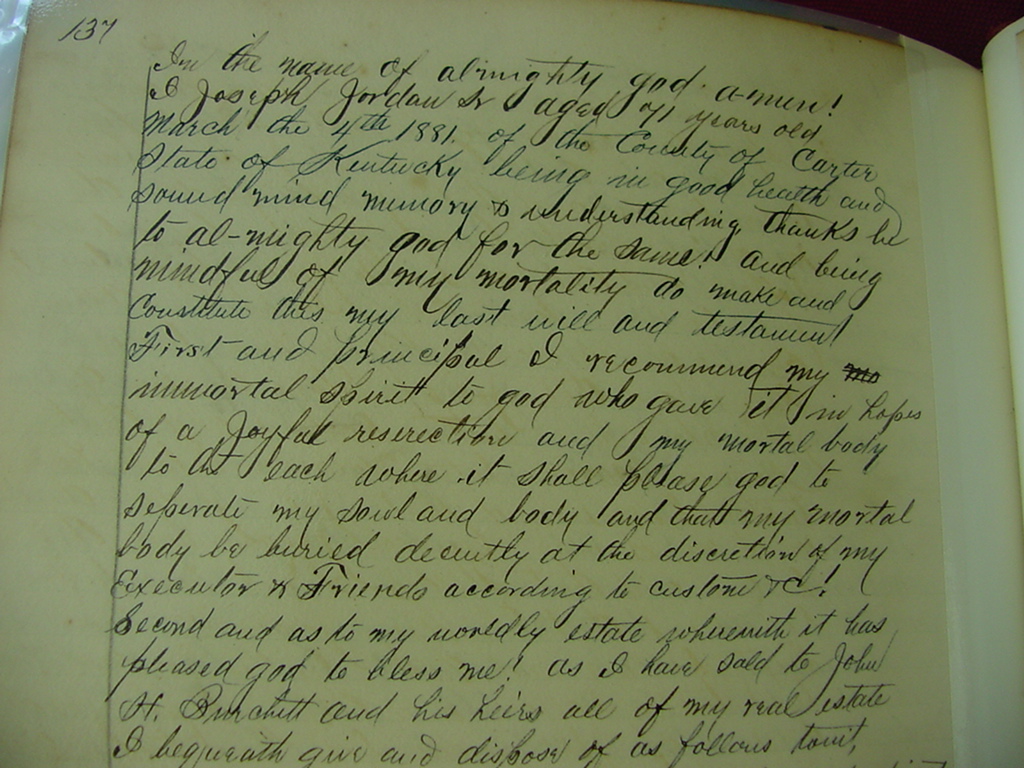 137
In the name of almighty god. amen!
I Joseph Jordan Sr aged years old
March the 4th 1881. of the County of Carter
State of Kentucky being in good heath and
sound mind memory & understanding thanks be
to al-mighty god for the same & and being
mindful of my mortality do make and
Constitute this my last will and testament
First and principal I recommend my
immortal spirit to god who gave it in hopes
of a Joyful resurection and my mortal body
to dust back where it shall please god to
seperate my soul and body and that my mortal
body be buried decently at the discretion of my
Executor & Friends according to custom &c!
Second and as to my worldly estate wherewith it has
pleased god to bless me as I have sold to John
H. and his heirs all of my real estate
I bequeath give and dispose of as follows towit,